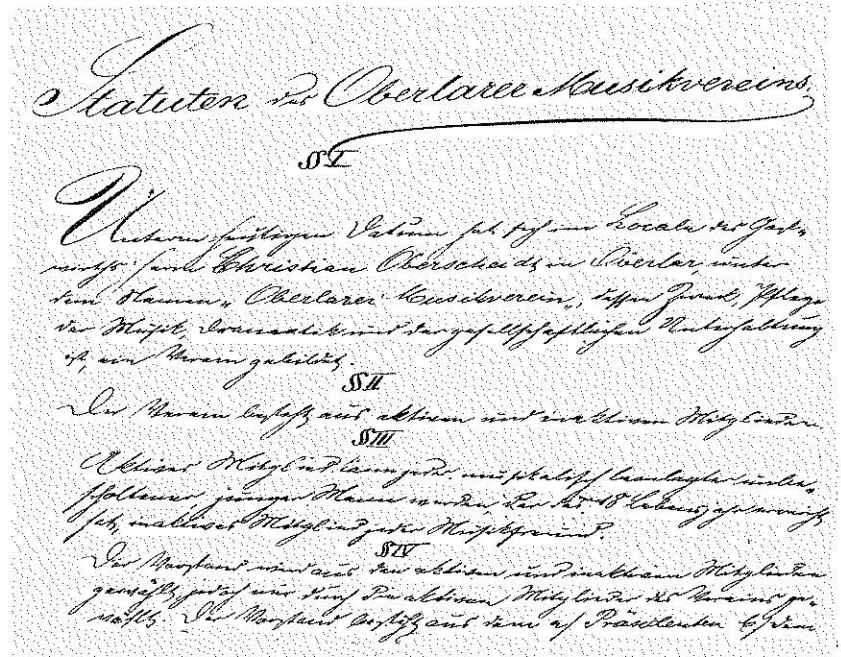 Statuten des Oberlarer Musikvereins.
§§ I
Unterm heutigen Datum hat sich im Locale des Gast-
wirths Herrn Christian Oberscheidt in Oberlar, unter
dem Namen „Oberlarer Musikverein„, dessen Zweck, Pflege
der Musik, Dramatik und der gesellschaftlichen Unterhaltung
ist, ein Verein gebildet.
§§ II
Der Verein besteht aus aktiven und inaktiven Mitgliedern.
§§ III
Aktives Mitglied kann jeder musikalisch beanlagter unbe-
scholtener junger Mann werden, der das 18 Lebensjahr erreicht
hat, inaktives Mitglied jeder Musikfreund.
§§ IV
Der Vorstand wird aus den aktiven und inaktiven Mitglieder
gewählt, jedoch nur durch die aktiven Mitglieder des Vereins ge-
wählt. Der Vorstand besteht aus dem a) Präsidenten b) dem